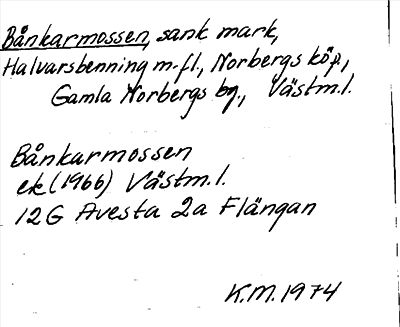 Bånkarmossen, sank mark,
Halvarsbenning m.fl., Norbergs köp.,
Gamla Norbergs bg., Västm.l.
Bånkarmossen
ek (1966) Västm.l.
12G Avesta 2a Flängan
K.M. 1974